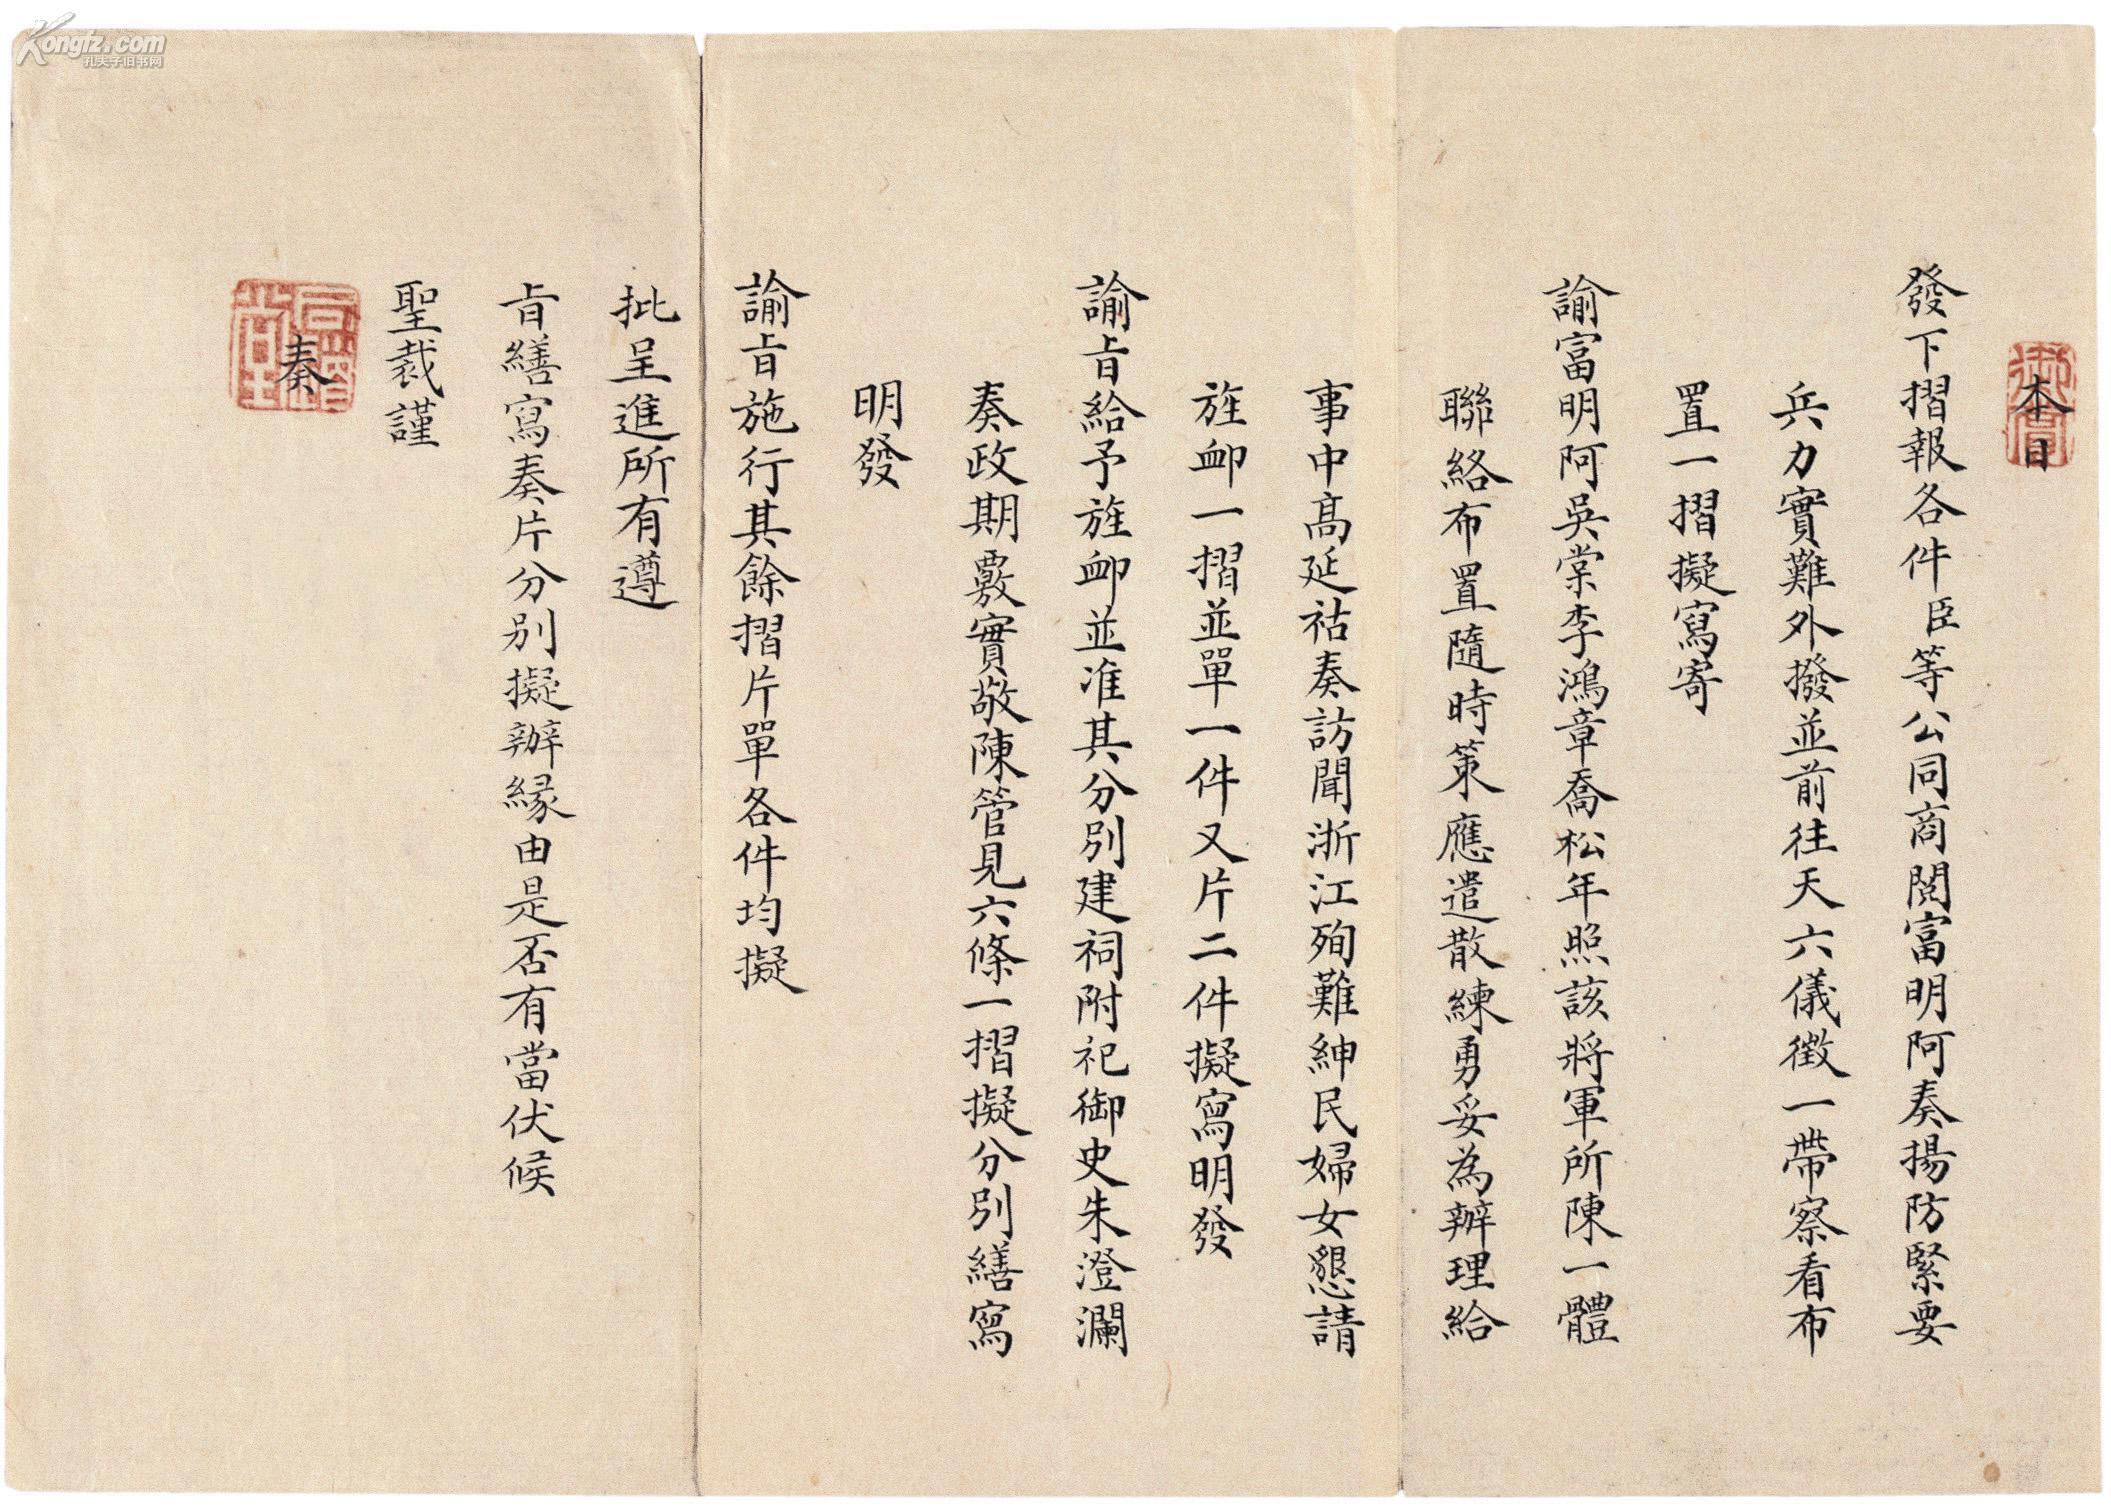 本日
發下摺報各件臣等公同商閱富明阿奏揚防緊要
兵力實難外撥並前往天六儀徵一帶察看布
置一摺擬寫寄
諭富明阿吳棠李鴻章喬松年照該將軍所陳一體
聯絡布置隨時策應遣散練勇妥為辦理給
事中高延祜奏訪聞浙江殉難紳民婦女懇請
旌卹一摺並單一件又片二件擬寫明發
諭旨給予旌卹並准其分別建祠附祀御史朱澄瀾
奏政期覈實敬陳管見六條一摺擬分別繕寫
明發
諭旨施行其餘摺片單各件均擬
批呈進所有遵
旨繕寫奏片分別擬辦緣由是否有當伏候
聖裁謹
奏
御賞
同道堂
Kongfz.com
孔夫子旧书网